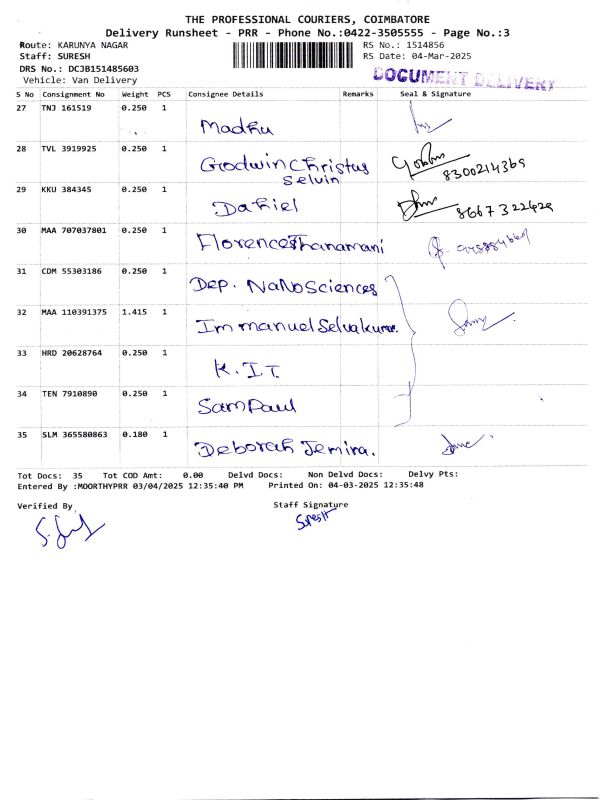 THE PROFESSIONAL COURIERS, COIMBATORE
Delivery Runsheet - PRR - Phone No.:0422-3505555 - Page No.:3
Route: KARUNYA NAGAR RS No.: 1514856
Staff: SURESH RS Date: 04-Mar-2025
DRS No.: DCJB151485603
Vehicle: Van Delivery DOCUMENT DELIVERY
S No Consignment No Weight PCS Consignee Details Remarks Seal & Signature
27 TNJ 161519 0.250 1
Madhu
28 TVL 3919925 0.250 1
Godwin Christus
Selvin 8300214369
29 KKU 384345 0.250 1
Daniel 8667322429
30 MAA 707037801 0.250 1
Florence Thanamani
31 CDM 55303186 0.250 1
Dep. NaNoSciences
32 MAA 110391375 1.415 1
Immanuel Selvakumar
33 HRD 20628764 0.250 1
K.I.T.
34 TEN 7910890 0.250 1
Sam Paul
35 SLM 365580863 0.180 1
Deborah Jemira.
Tot Docs: 35 Tot COD Amt: 0.00 Delvd Docs: Non Delvd Docs: Delvy Pts:
Entered By :MOORTHYPRR 03/04/2025 12:35:40 PM Printed On: 04-03-2025 12:35:48
Verified By Staff Signature
Suresh